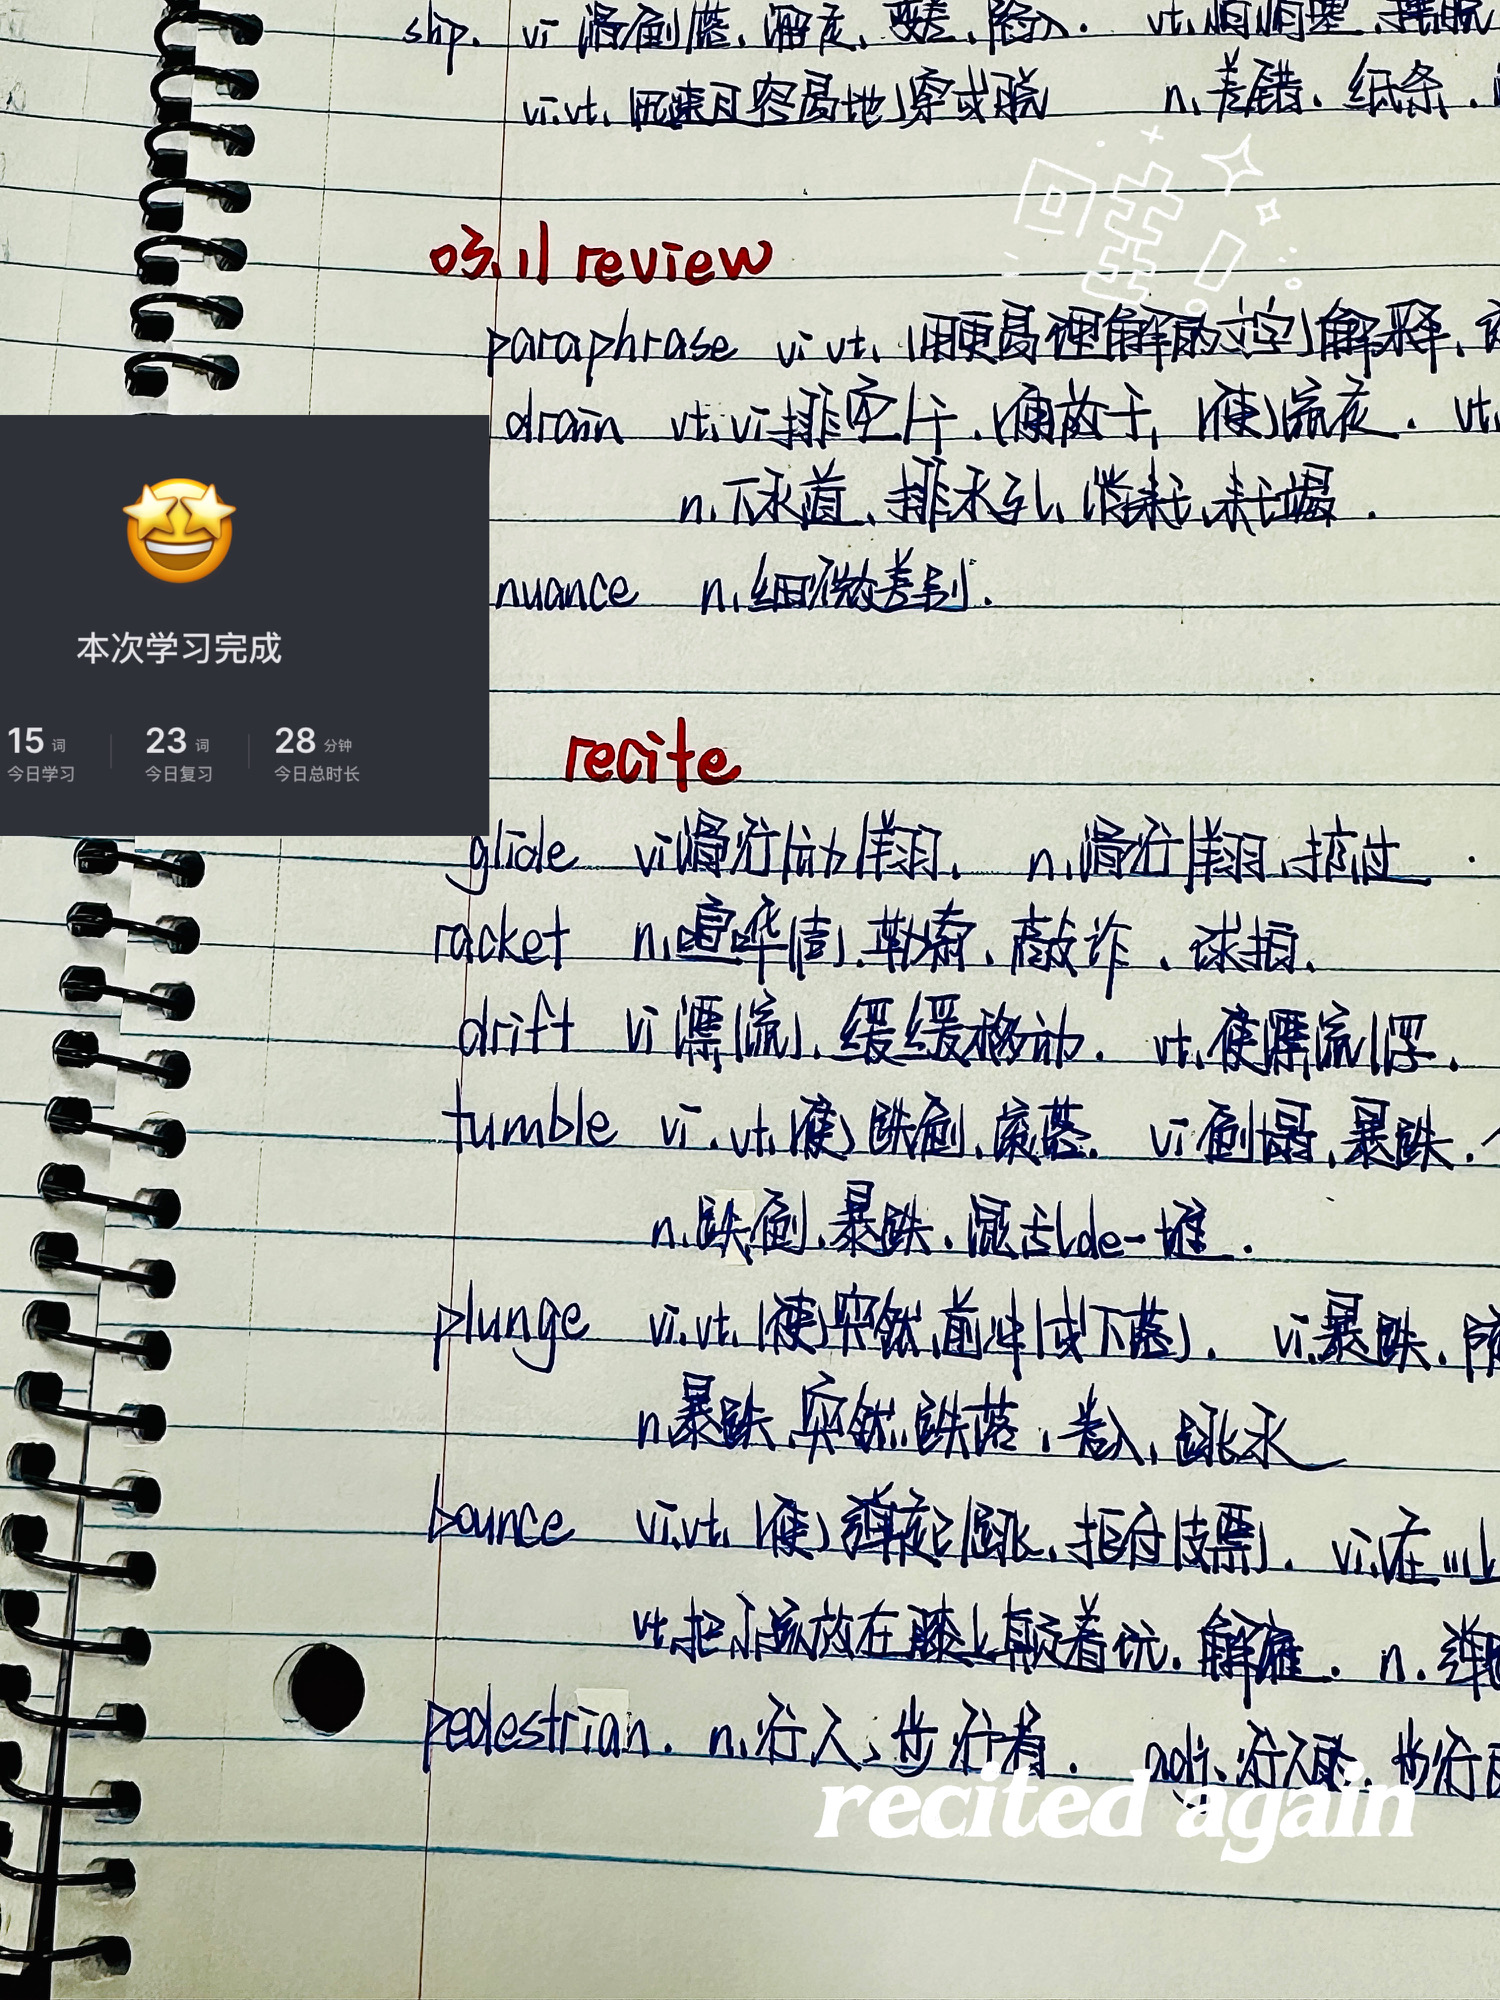 slip. vi 滑倒(落、溜走、变差、陷入. vt.悄悄塞、摆脱
vi.vt. (迅速且容易地)穿或脱 n.差错.纸条.
哇!
03.11 review
paraphrase vi.vt.(用更易理解的文字)解释、
drain vt.vi排空(干.(使)放干,(使)流走. vt.
n.下水道、排水引、消耗、耗竭.
nuance n.细微差别.
🤩
本次学习完成
15词 23词 28分钟
今日学习 今日复习 今日总时长
recite
glide vi滑行(动)翔. n.滑行(翔、掠过.
racket n.喧哗(声)、勒索、敲诈、球拍.
drift vi漂(流)、缓缓移动. vt.使漂流(浮.
tumble vi.vt.(使)跌倒、滚落. vi倒塌、暴跌.
n.跌倒、暴跌.混乱de一堆.
plunge vi.vt.(使)突然前冲(或下落). vi.暴跌.
n.暴跌、突然跌落、卷入、跳水
bounce vi.vt.(使)弹起(跳、拒付(支票). vi.在...上
vt.把小孩放在膝上颠着玩.解雇. n.弹
pedestrian. n.行人、步行者. adj.行人的.步行
recited again